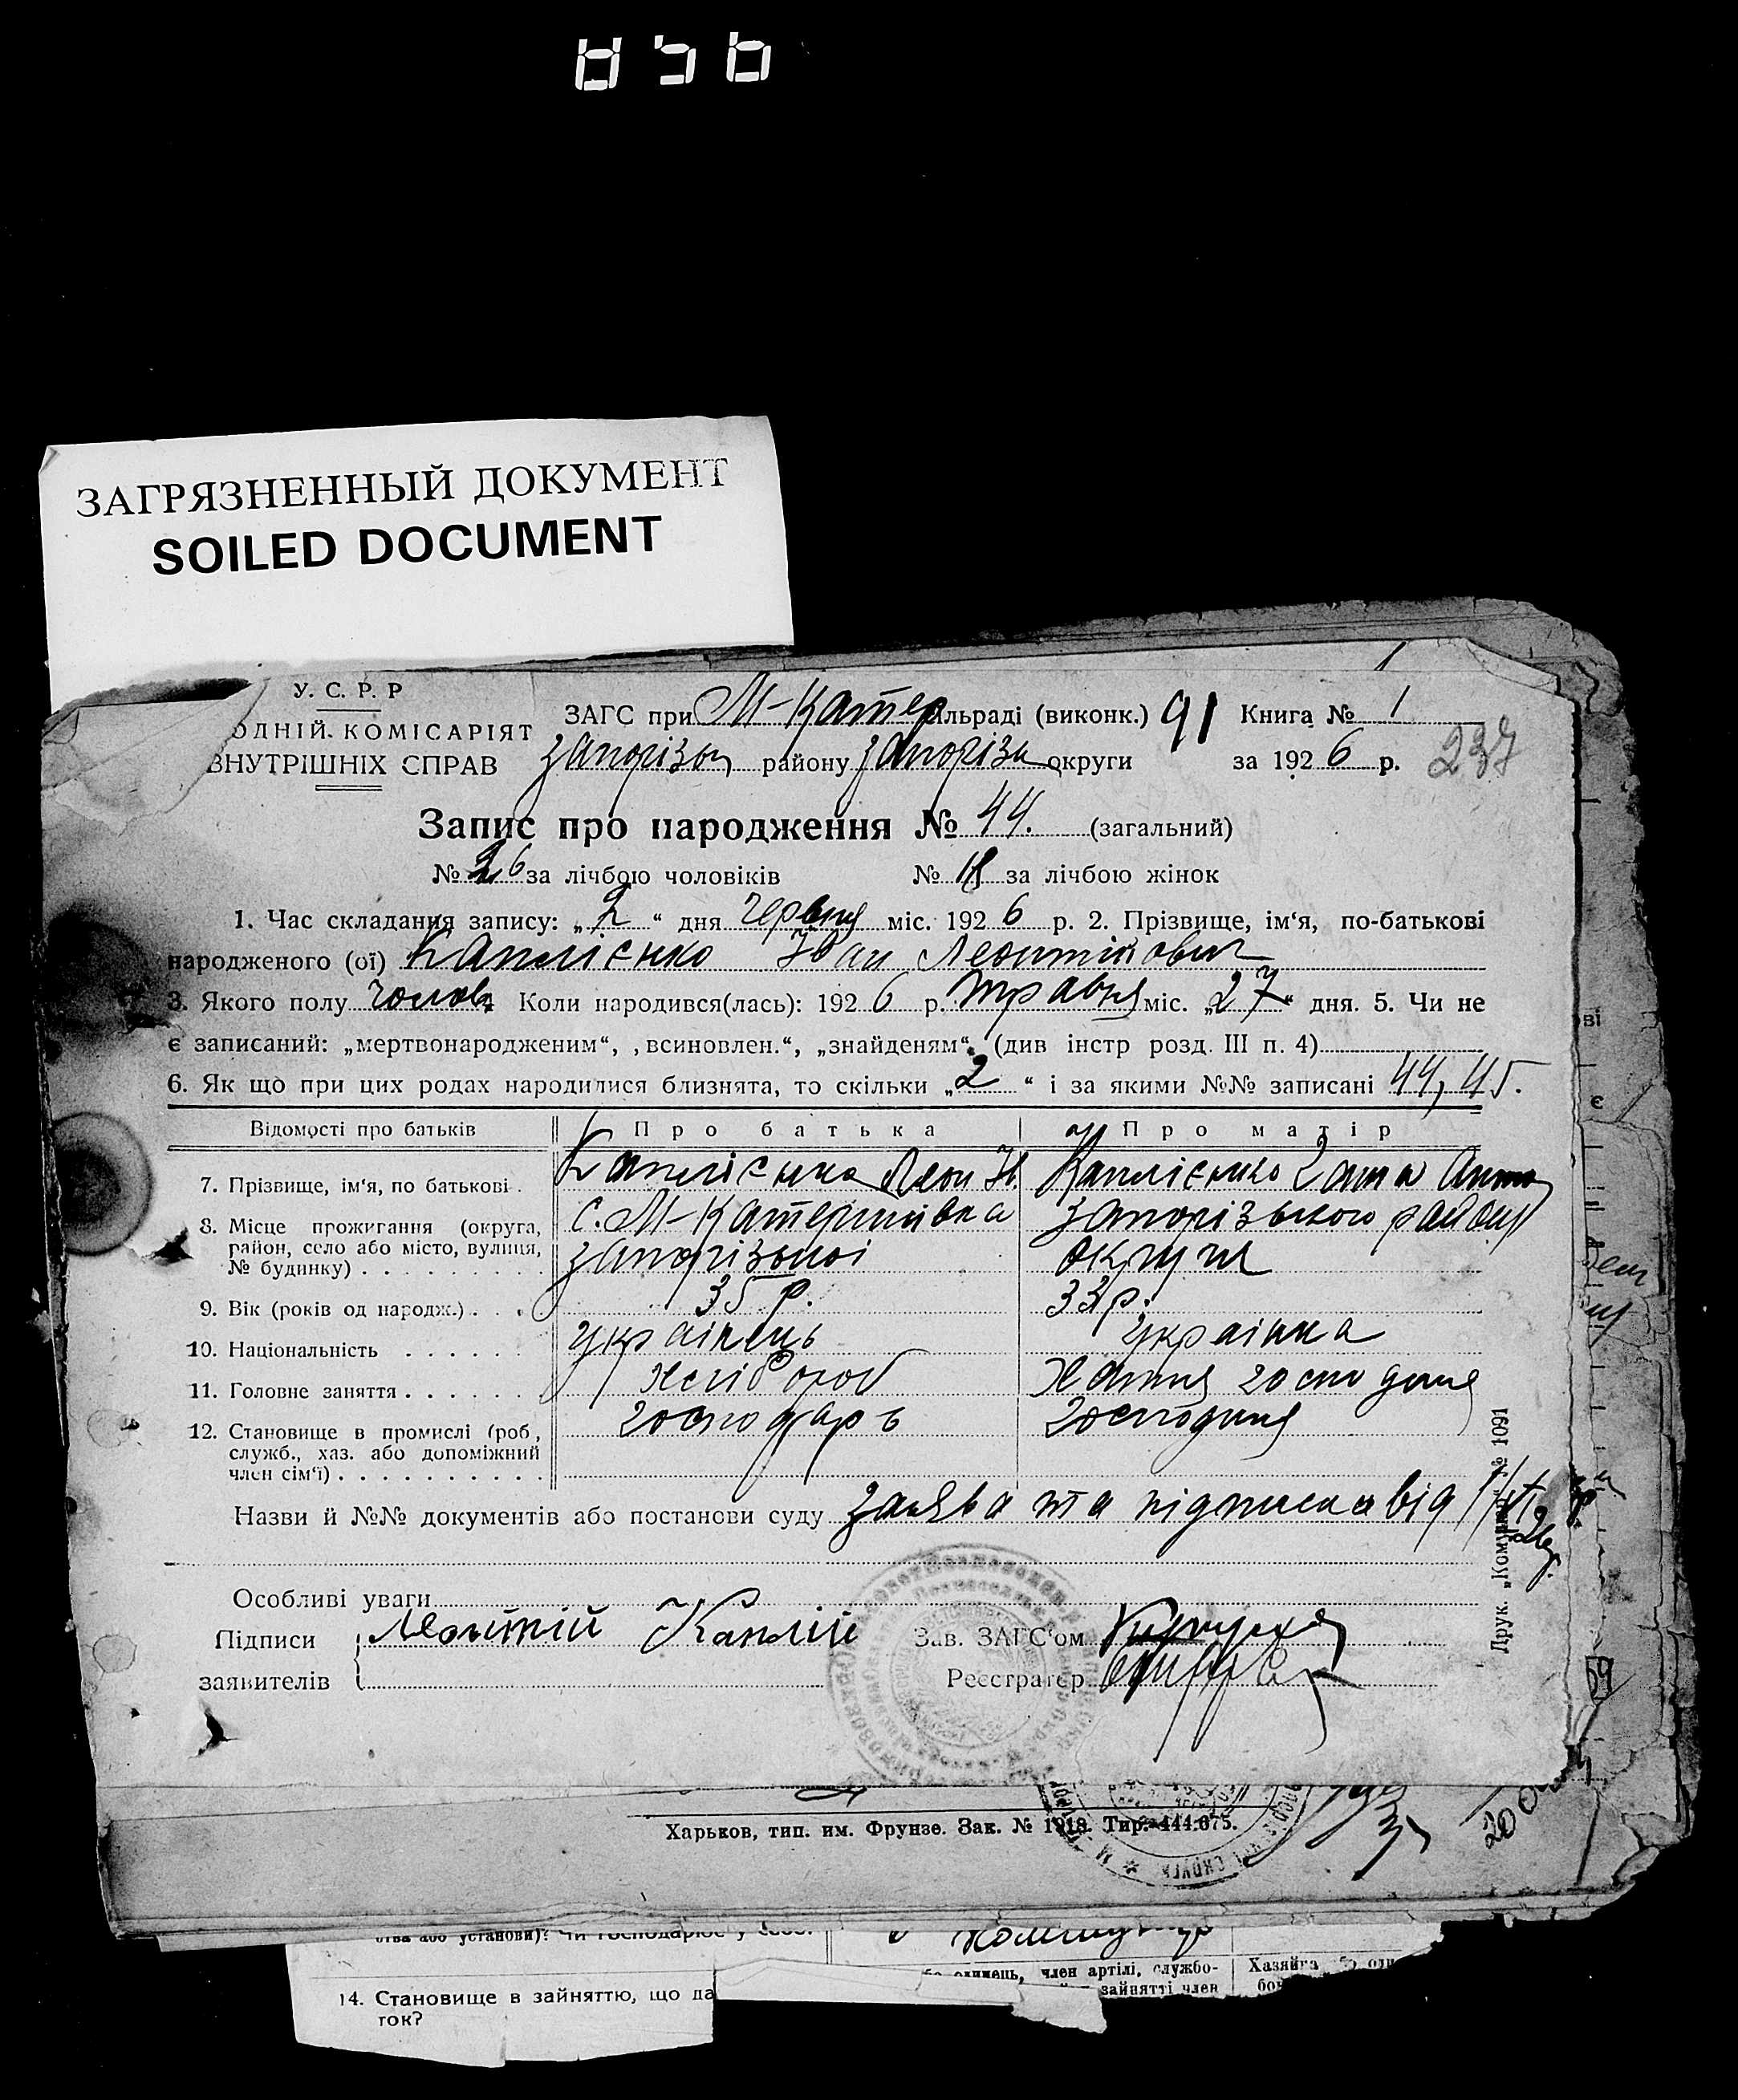 ЗАГРЯЗНЕННЫЙ ДОКУМЕНТ
SOILED DOCUMENT
У. С. Р. Р
ОДНІЙ. КОМІСАРІЯТ
ВНУТРІШНІХ СПРАВ
ЗАГС при М-Катер ільраді (виконк.) 91 Книга № 1
району округи за 1926 р. 237
Запис про народження № 44. (загальний)
№ 26 за лічбою чоловіків № 18 за лічбою жінок
1. Час складання запису: „2“ дня червня міс. 1926 р. 2. Прізвище, ім‘я, по-батькові
народженого (ої) Каплієнко Іван Леонтійович
3. Якого полу чолов. Коли народився(лась): 1926 р. травня міс. „27“ дня. 5. Чи не
є записаний: „мертвонародженим“, „всиновлен.“, „знайденям“. (див інстр розд. III п. 4)
6. Як що при цих родах народилися близнята, то скільки „2“ і за якими №№ записані 44, 45.
Відомості про батьків Про батька Про матір
7. Прізвище, ім'я, по батькові. Каплієнко Леон І. Каплієнко Ганна Анто
8. Місце прожигання (округа, с. М-Катеринівка Запорізького району
район, село або місто, вулиця, Запорізької округи
№ будинку)
9. Вік (років од народж.) 35 р. 33 р.
10. Національність українець українка
11. Головне заняття хлібороб Хатня господиня
12. Становище в промислі (роб, господарь господиня
служб., хаз. або допоміжний
член сім'ї)
Назви й №№ документів або постанови суду заява та підписка від
Особливі уваги
Підписи Леонтій Каплій Зав. ЗАГС'ом
заявителів Реєстратер
Друк. „Комунар“ № 1091
Харьков, тип. им. Фрунзе. Зак. № 1918. Тир. 444.675.
член артілі, службо-
зайнятті член
14. Становище в зайняттю, що да
ток?